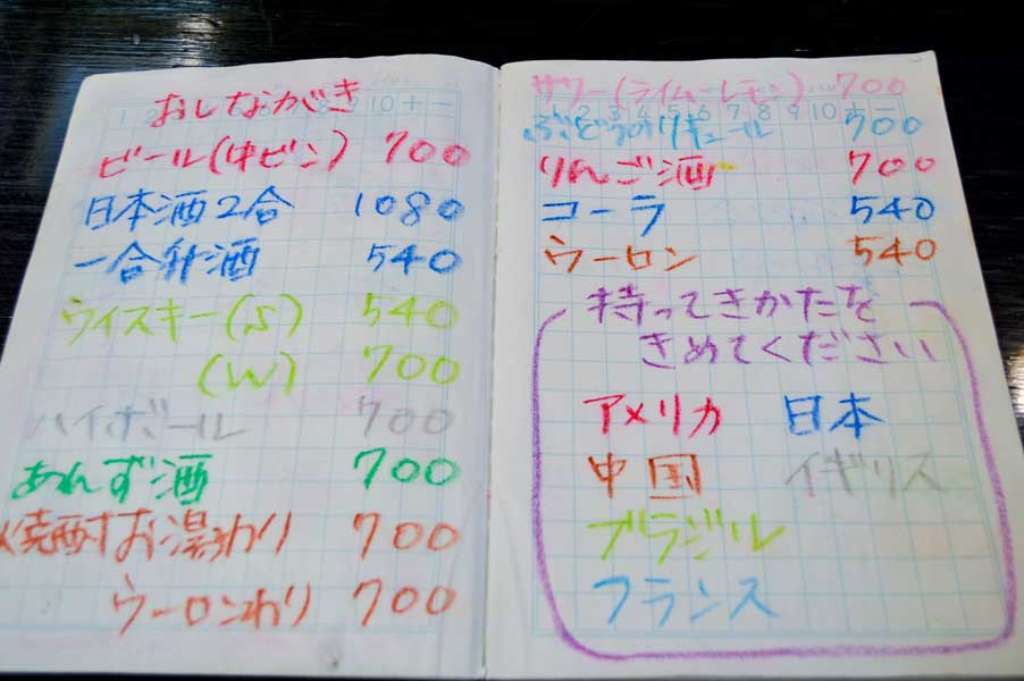 おしながき
ビール(中ビン) 700
日本酒2合 1080
一合升酒 540
ウイスキー(S) 540
(W) 700
ハイボール 700
あんず酒 700
焼酎お湯わり 700
ウーロンわり 700
サワー(ライム・レモン) 700
1 2 3 4 5 6 7 8 9 10 + −
ぶどうリキュール 700
りんご酒 700
コーラ 540
ウーロン 540
持ってきかたを
きめてください
アメリカ 日本
中国 イギリス
ブラジル
フランス